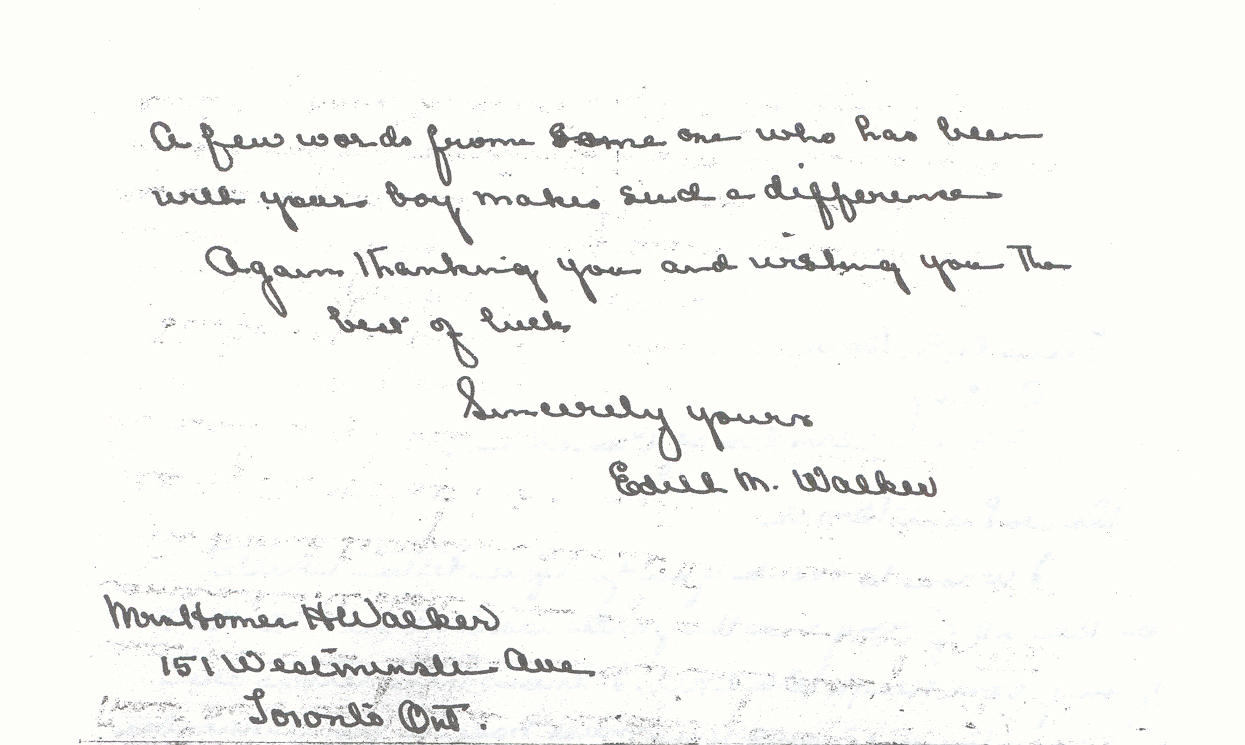 A few words from some one who has been
with your boy makes such a difference
Again thanking you and wishing you the
best of luck
Sincerely yours
Edith M. Walker
Mrs Homer H Walker
151 Westminster Ave
Toronto Ont.